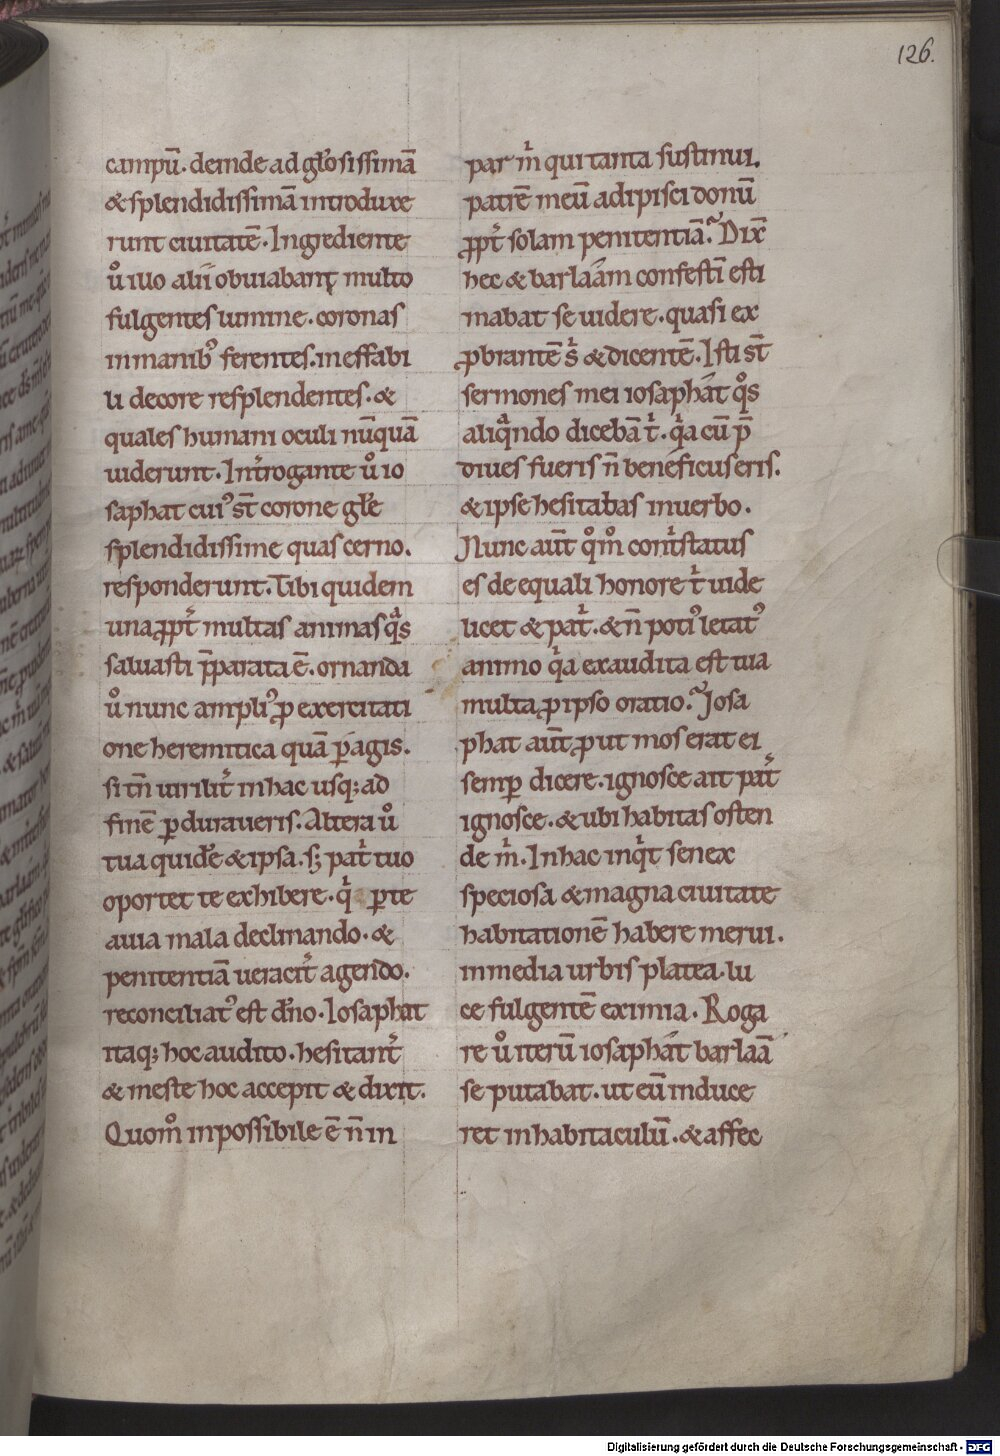 126.
campū. deinde ad gl̄osissimā
& splendidissimā introduxe
runt ciuitatē. Ingrediente
ů illo alii obuiabant multo
fulgentes lumine. coronas
in manib; ferentes. ineffabi
li decore resplendentes. &
quales humani oculi nūquā
uiderunt. Int̓rogante ů io
saphat cui' st̄ corone gl̄e
splendidissime quas cerno.
responderunt. Tibi quidem
una ꝓpt̓ multas animas qᵃs
saluasti p̄parata ē. ornanda
ů nunc ampli' ꝓ exercitati
one heremitica quā ꝑagis.
si tn̄ uirilit̓ in hac usq; ad
finē ꝑduraueris. Altera ů
tua quidē & ipsa. s; pat̓ tuo
oportet te exhibere. qⁱ ꝑ te
a uia mala declinando. &
penitentiā ueracit̓ agendo.
reconciliat' est dn̄o. Iosaphat
itaq; hoc audito. hesitant̓
& meste hoc accepit & dixit.
Quom̊ inpossibile ē n̄ in
par m̓ qui tanta sustinui.
patrē meū adipisci donū
ꝓpt̓ solam penitentiā? Dix̄
hec & barlaam confestī esti
mabat se uidere. quasi ex
ꝓbrantē s̓ & dicentē. Isti st̄
sermones mei iosaphat qͦs
aliqᵃndo dicebā t̓. qⁱa cū p̄
diues fueris n̄ beneficus eris.
& ipse hesitabas in uerbo.
Nunc aūt qͦm̊ cont̓status
es de equali honore t̓ uide
licet & pat̓. & n̄ poti' letat'
animo qⁱa exaudita est tua
multa ꝓ ipso oratio? Iosa
phat aūt ꝓut mos erat ei
semꝑ dicere. ignosce ait pat̓
ignosce. & ubi habitas osten
de m̓. In hac inqⁱt senex
speciosa & magna ciuitate
habitationē habere merui.
in media urbis platea. lu
ce fulgentē eximia. Roga
re ů iterū iosaphat barlaā
se putabat. ut eū induce
ret in habitaculū. & affec
Digitalisierung gefördert durch die Deutsche Forschungsgemeinschaft - DFG